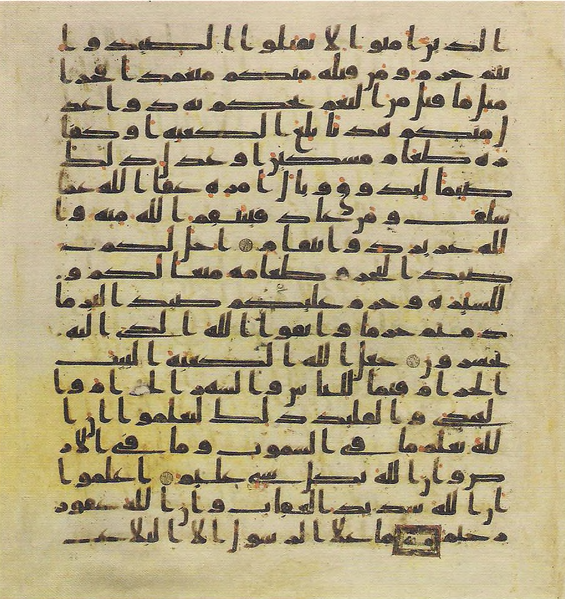 الذين امنوا لا تقتلوا الصيد وا
نتم حرم ومن قتله منكم متعمدا فجزا
مثل ما قتل من النعم يحكم به ذوا عد
ل منكم هديا بلغ الكعبة او كفا
رة طعام مسكين او عدل ذلك
صياما ليذوق وبال امره عفا الله عما
سلف ومن عاد فينتقم الله منه وا
لله عزيز ذو انتقام احل لكم
صيد البحر وطعامه متعا لكم و
للسيرة وحرم عليكم صيد البر ما
دمتم حرما واتقوا الله الذي اليه
تحشرون جعل الله الكعبة البيت
الحرام قيما للناس والشهر الحرام وا
لهدي والقليد ذلك لتعلموا ان ا
لله يعلم ما في السموت وما في الار
ض وان الله بكل شي عليم اعلموا
ان الله شديد العقاب وان الله غفور
رحيم ما على الرسول الا البلاغ